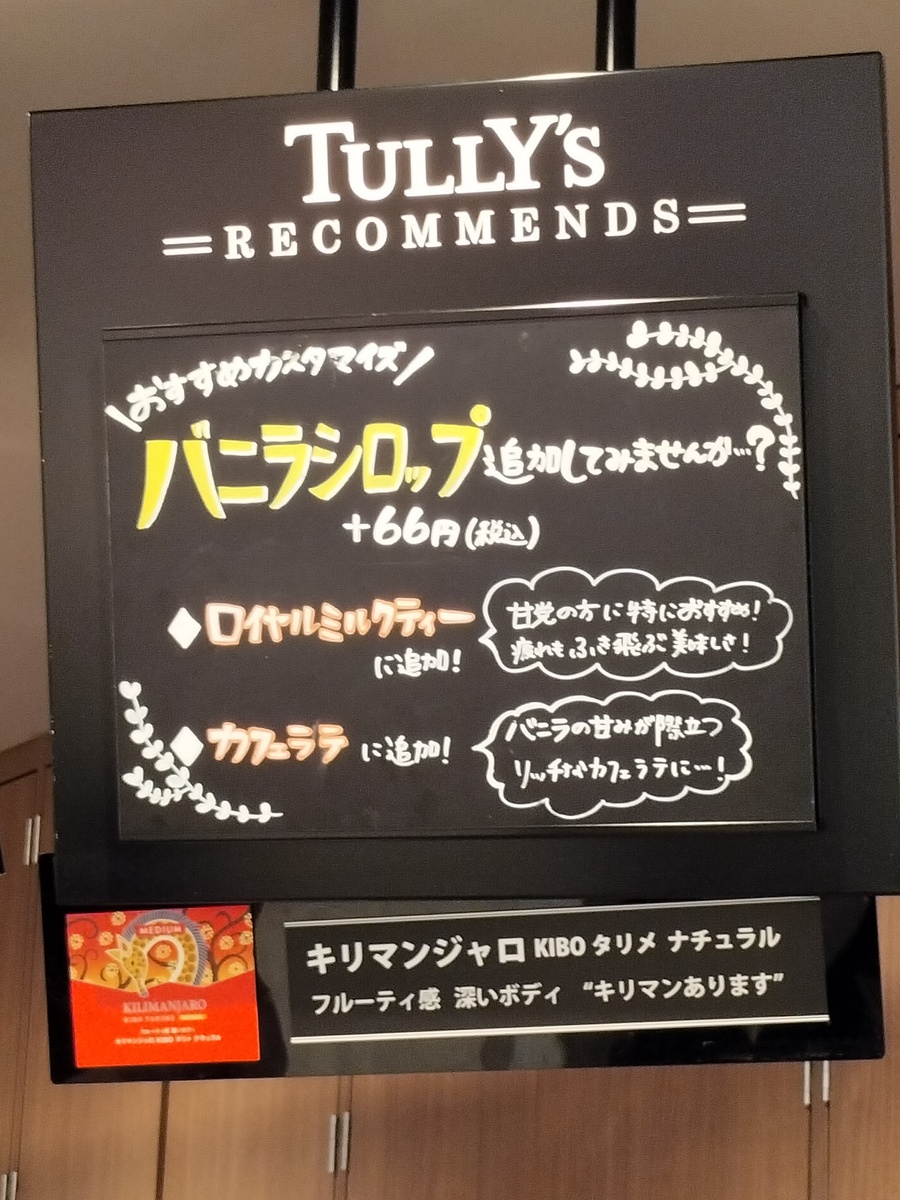 TULLY'S
RECOMMENDS
\おすすめカスタマイズ/
バニラシロップ追加してみませんか…?
+66円(税込)
◆ロイヤルミルクティー
に追加!
甘党の方に特におすすめ!
疲れもふき飛ぶ美味しさ!
◆カフェラテ に追加!
バニラの甘みが際立つ
リッチなカフェラテに…!
MEDIUM
KILIMANJARO
キリマンジャロ KIBO タリメ ナチュラル
キリマンジャロ KIBO タリメ ナチュラル
フルーティ感 深いボディ “キリマンあります”